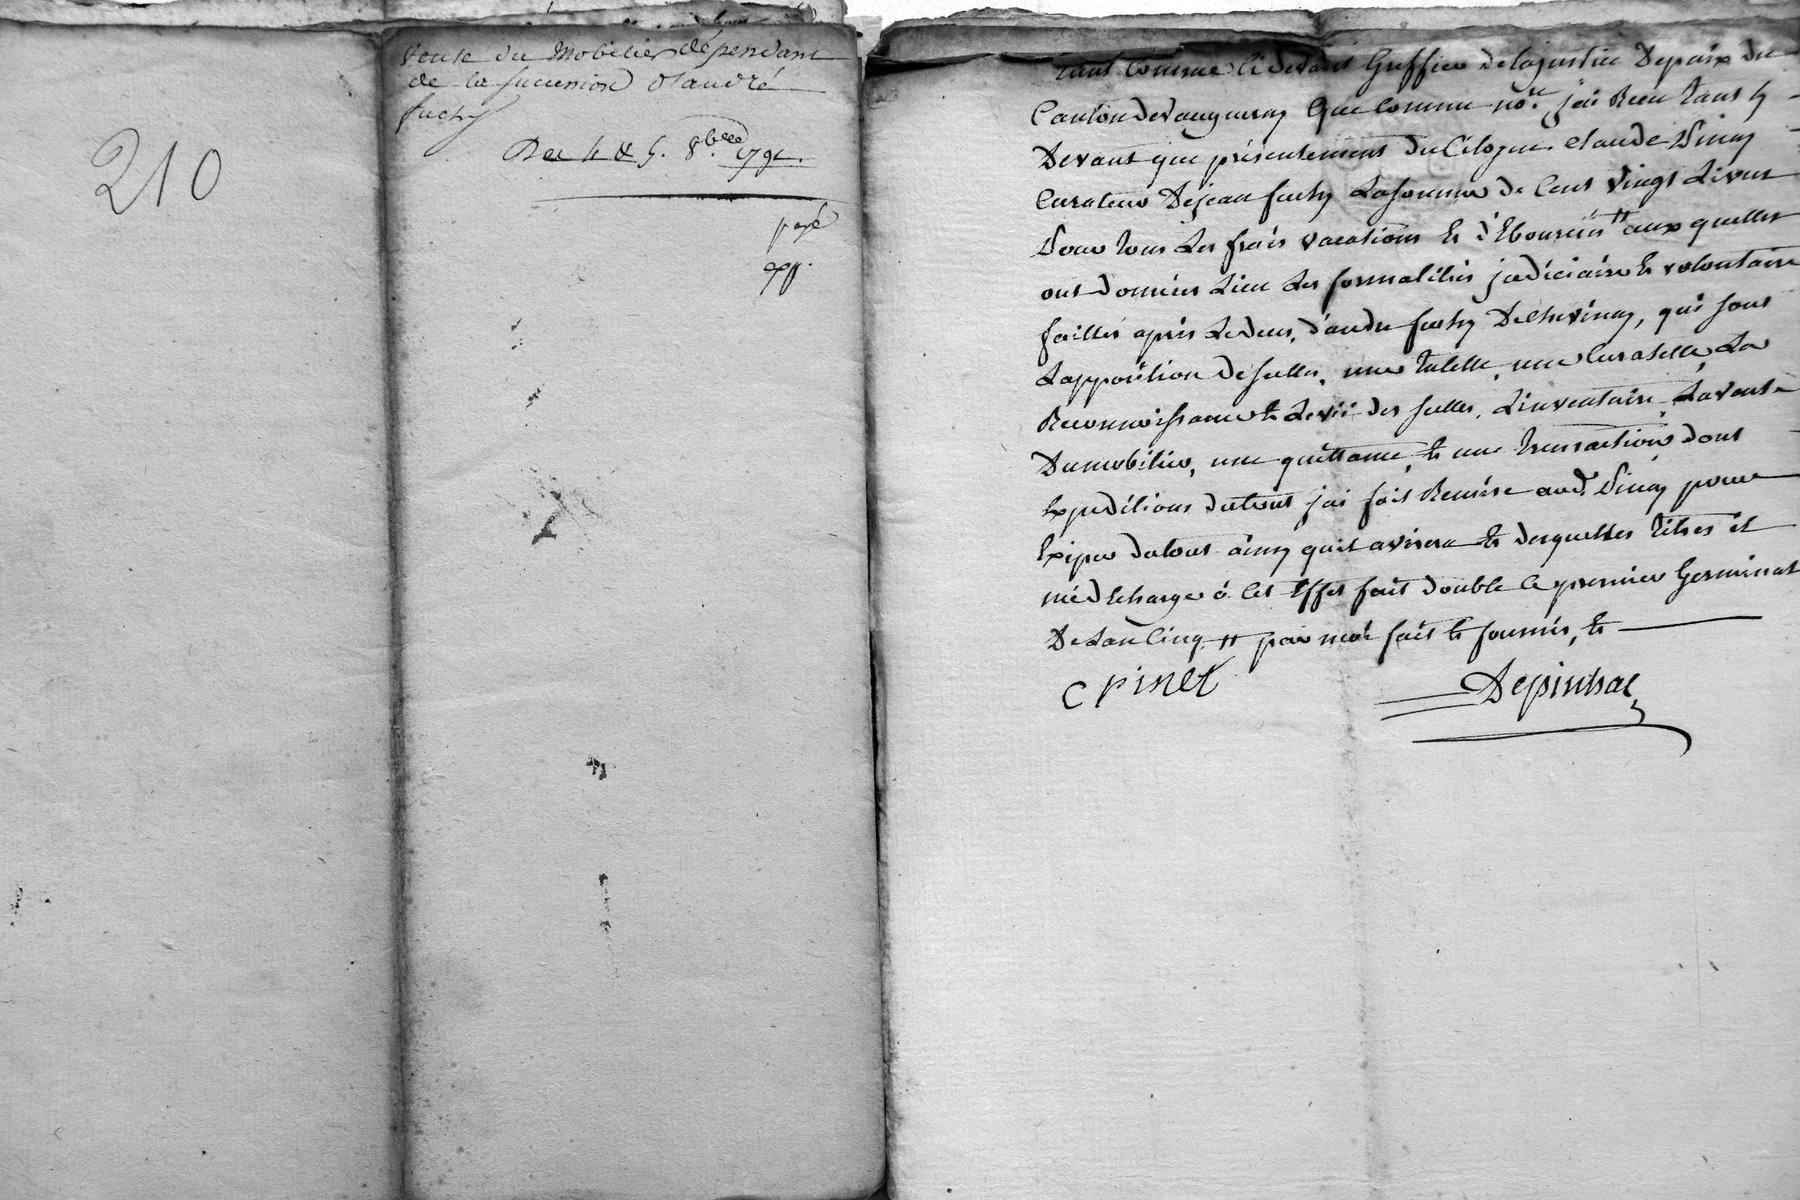 210
vente du Mobilier dépendant
de la succession d'andré
fuchy
Des 4 & 5. 8bre 1791.
payé
exp.
tant comme ci devant Greffier delajustice Depaix du
Canton devaugneray que comme nore. jai Recu tant cy
Devant que présentement du Citoyen claude Pinay
Curateur Dejean fuchy Lasomme de Cent vingt Livres
Pour tous Les frais vacations et déboursés aux quelles
ont données Lieu Les formalités judiciaires et volontaire
faittes après Ledeces, d'andre fuchy Dechevinay, qui sont
Lapposition descelles, une tutelle, une Curatelle, La
Reconnoissance et Levée des scelles, Linventaire, Lavente
Dumobilier, une quittance, et une transaction dont
Expeditions dutout jai fait Remise aud. Pinay pour
dutout ainsy quil avisera et desquelles titres il
me décharge à cet Effet fait double le premier Germinal
De Lan Cinq par moi fait et fournis, et
C PINET
Depinhac